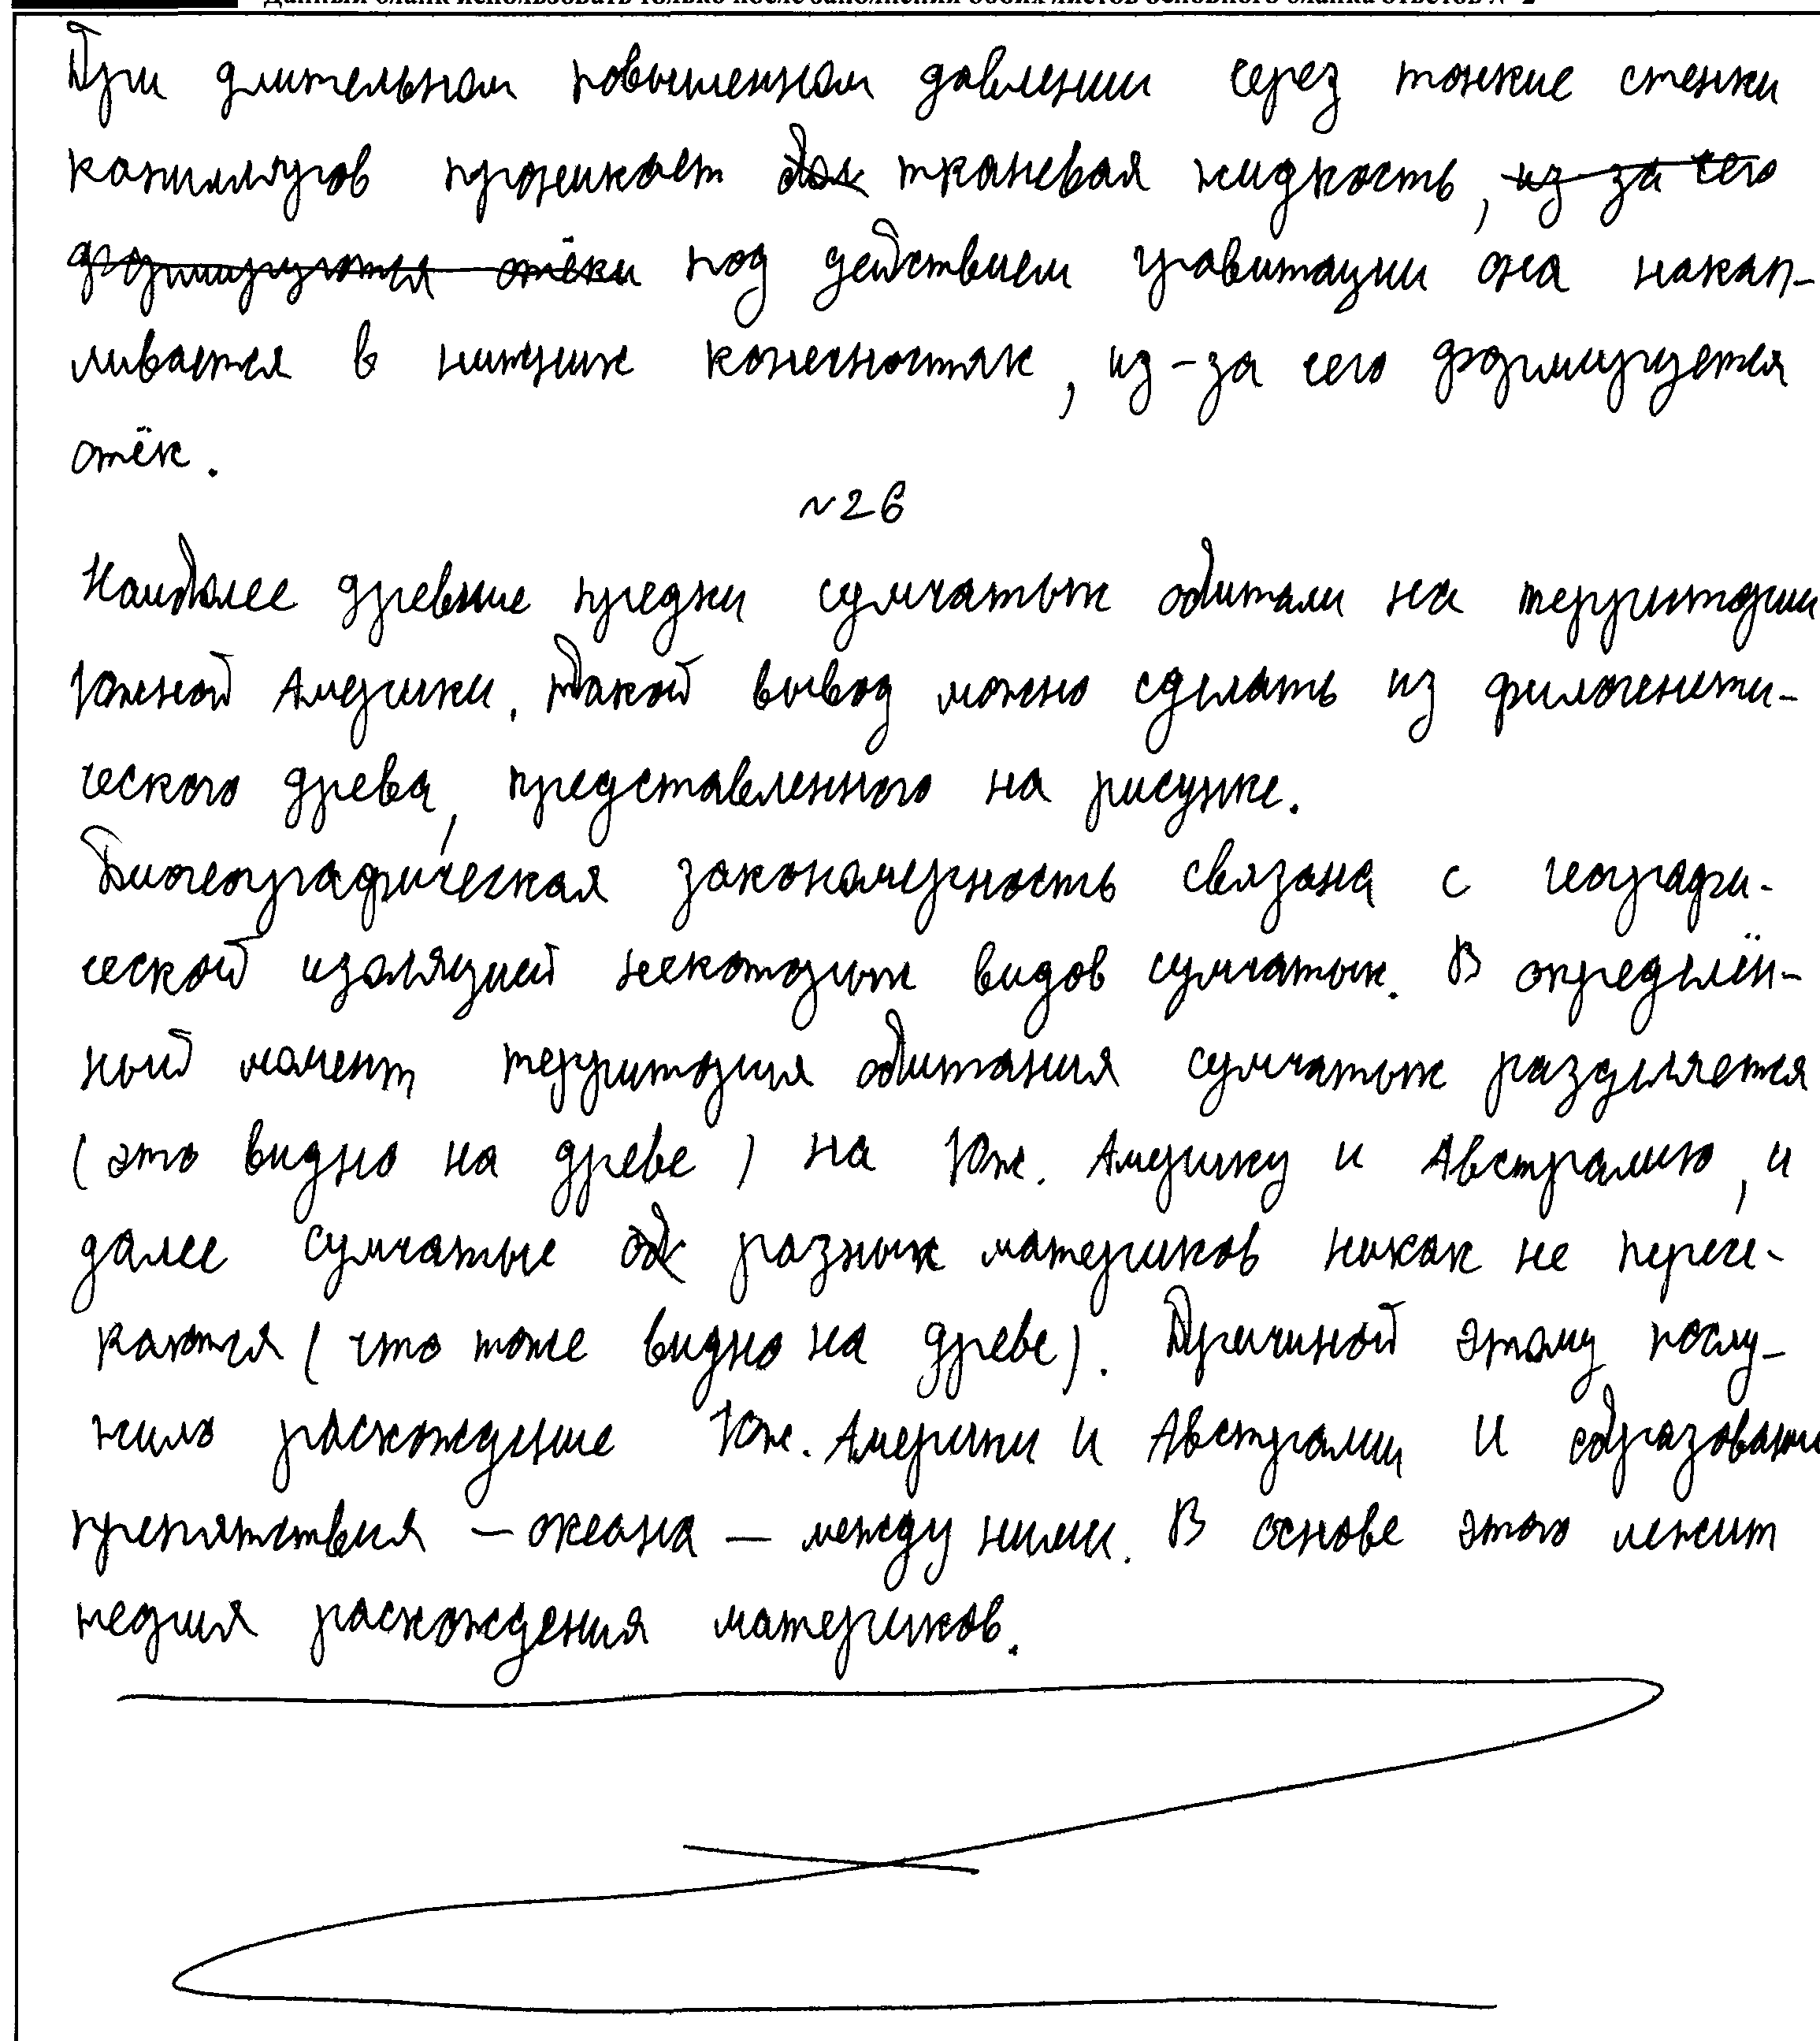 Данный бланк использовать только после заполнения обоих листов основного бланка ответов № 2
При длительном повышенном давлении через тонкие стенки
капилляров проникает тканевая жидкость, из-за чего
формируются отёки под действием гравитации она накап-
ливается в нижних конечностях, из-за чего формируется
отёк.
~26
Наиболее древние предки сумчатых обитали на территории
Южной Америки. Такой вывод можно сделать из филогенети-
ческого древа, представленного на рисунке.
Биогеографическая закономерность связана с географи-
ческой изоляцией некоторых видов сумчатых. В определён-
ный момент территория обитания сумчатых разделяется
(это видно на древе) на Юж. Америку и Австралию, и
далее сумчатые разных материков никак не пересе-
каются (что тоже видно на древе). Причиной этому послу-
жило расхождение Юж. Америки и Австралии и образование
препятствия – океана – между ними. В основе этого лежит
теория расхождения материков.